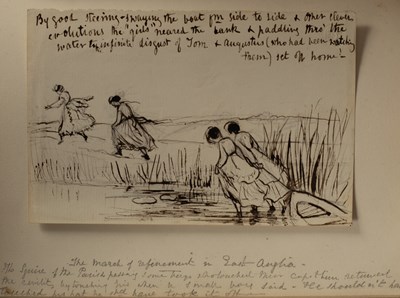 By good steering - swaying the boat from side to side & other clever
evolutions the "girls" neared the bank & paddling thro' the
water to infinite disgust of Tom & Augustus (who had been watching
them) set off home -
The march of refinement in East Anglia -
The Squire of the Parish passing some boys who touched their caps to him returned
the civility by touching his when a small boy said - He shouldn't have
touched his hat he